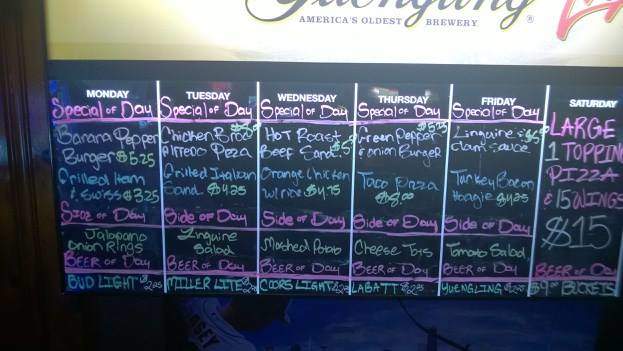 Yuengling
AMERICA'S OLDEST BREWERY ®
MONDAY
Special of Day
Banana Pepper
Burger $5.25
Grilled Ham
& Swiss $3.25
Side of Day
Jalapano
Onion Rings
BEER of Day
BUD LIGHT
TUESDAY
Special of Day
Chicken Broc
Alfredo Pizza
Grilled Italian
Sand. $4.25
Side of Day
Linguine
Salad
BEER of Day
MILLER LITE
WEDNESDAY
Special of Day
Hot Roast
Beef Sand.
Orange Chicken
w/ rice $4.75
Side of Day
Mashed Potato
BEER of Day
COORS LIGHT
THURSDAY
Special of Day
Green Pepper
& onion Burger
Taco Pizza
$8.00
Side of Day
Cheese Tots
BEER of Day
LABATT
FRIDAY
Special of Day
Linguine &
Clam sauce
Turkey Bacon
Hoagie $4.25
Side of Day
Tomato Salad
BEER of Day
YUENGLING
SATURDAY
LARGE
1 TOPPING
PIZZA
& 15 WINGS
$15
BEER of DA
BUCKETS
SEY